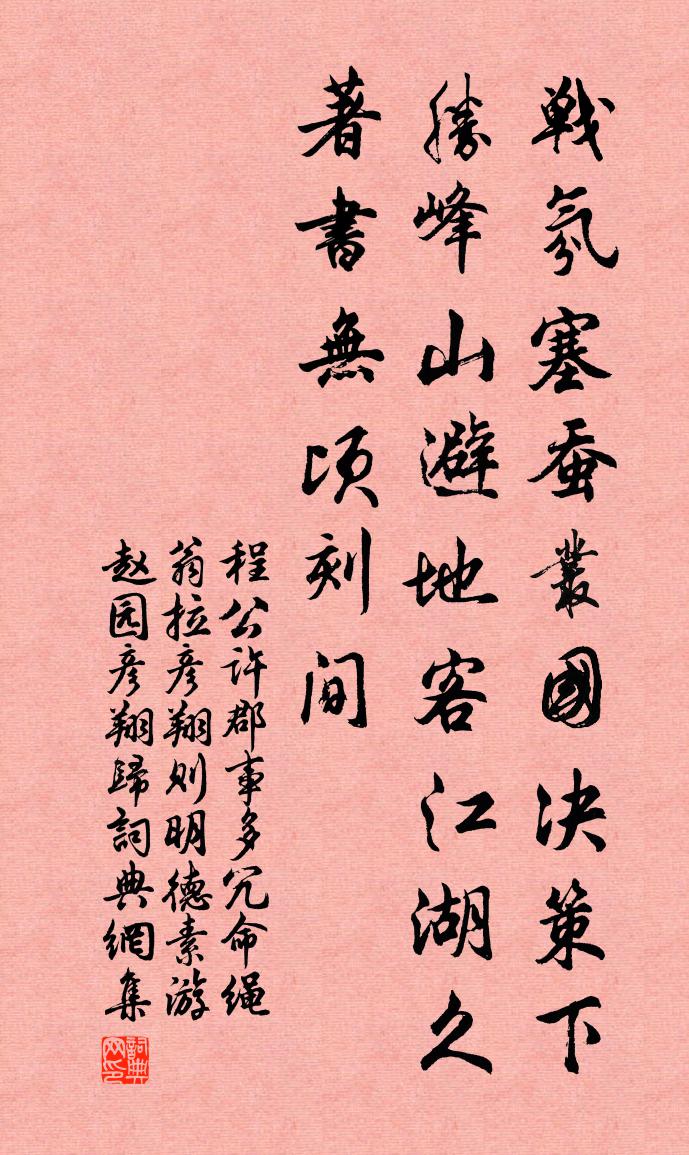 戦氛塞蚕叢國决策下
勝峰山避地客江湖久
著書無頃刻间
程公许郡事多冗命绳
翁拉彦翔则明德素游
赵园彦翔歸詞典網集
詞典网印